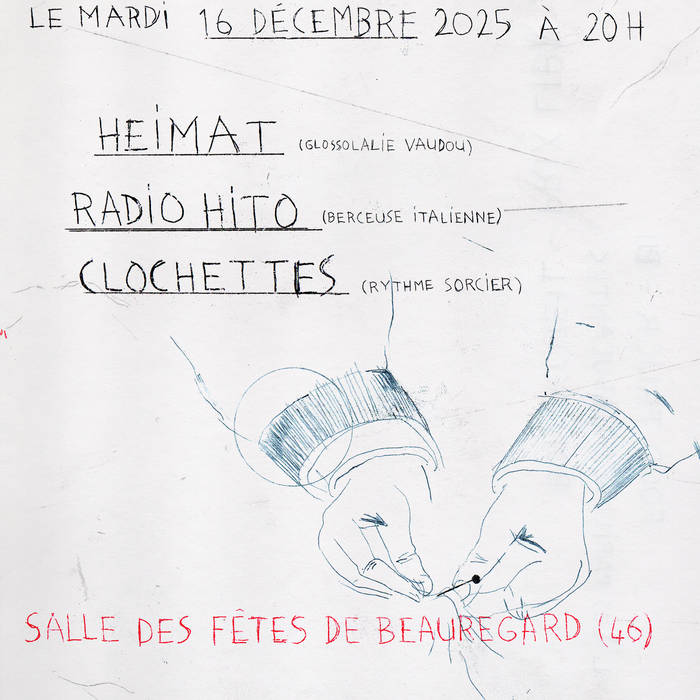 LE MARDI 16 DÉCEMBRE 2025 À 20H
HEIMAT (GLOSSOLALIE VAUDOU)
RADIO HITO (BERCEUSE ITALIENNE)
CLOCHETTES (RYTHME SORCIER)
SALLE DES FÊTES DE BEAUREGARD (46)